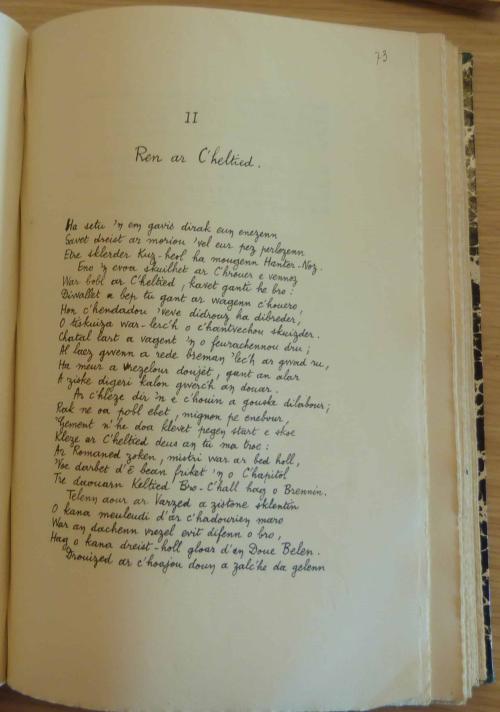 73
II
Ren ar C'heltied.
Ha setu 'n em gavis dirak eun enezenn
Savet dreist ar moriou 'vel eur pez perlezenn
Etre sklerder Kuz-heol ha mougenn Hanter-Noz.
Eno 'n evoa skuilhet ar C'hrouer e vennoz
War bobl ar C'heltied, kavet gante he bro:
Diwallet a bep tu gant ar wagenn c'houero,
Hon c'hendadou 'veve didrouz ha dibreder,
O tiskuiza war-lerc'h o c'hantvechou skuizder.
Chatal lart a vagent 'n o feurachennou dru;
Al laez gwenn a rede breman 'lec'h ar gwad ru,
Ha meur a vrezelour doujet, gant an alar
A ziske digeri kalon gwerc'h an douar.
Ar c'hleze dir 'n e c'houin a gouske dilabour;
Rak ne oa pobl ebet, mignon pe enebour,
N'he doa klevet pegen start e skoe
Kleze ar C'heltied deus an tu ma troe:
Ar Romaned zoken, mistri war ar bed holl,
Voe darbet d'ê bean friket 'n o C'hapitol
Tre daouarn Keltied Bro-C'hall hag o Brennin.
Telenn aour ar Varzed a zistone sklentin
O kana meuleudi d'ar c'hadourien maro
War an dachenn vrezel evit difenn o bro,
Hag o kana dreist-holl gloar d'an Doue Belen.
Drouized ar c'hoajou doun a zalc'he da gelenn